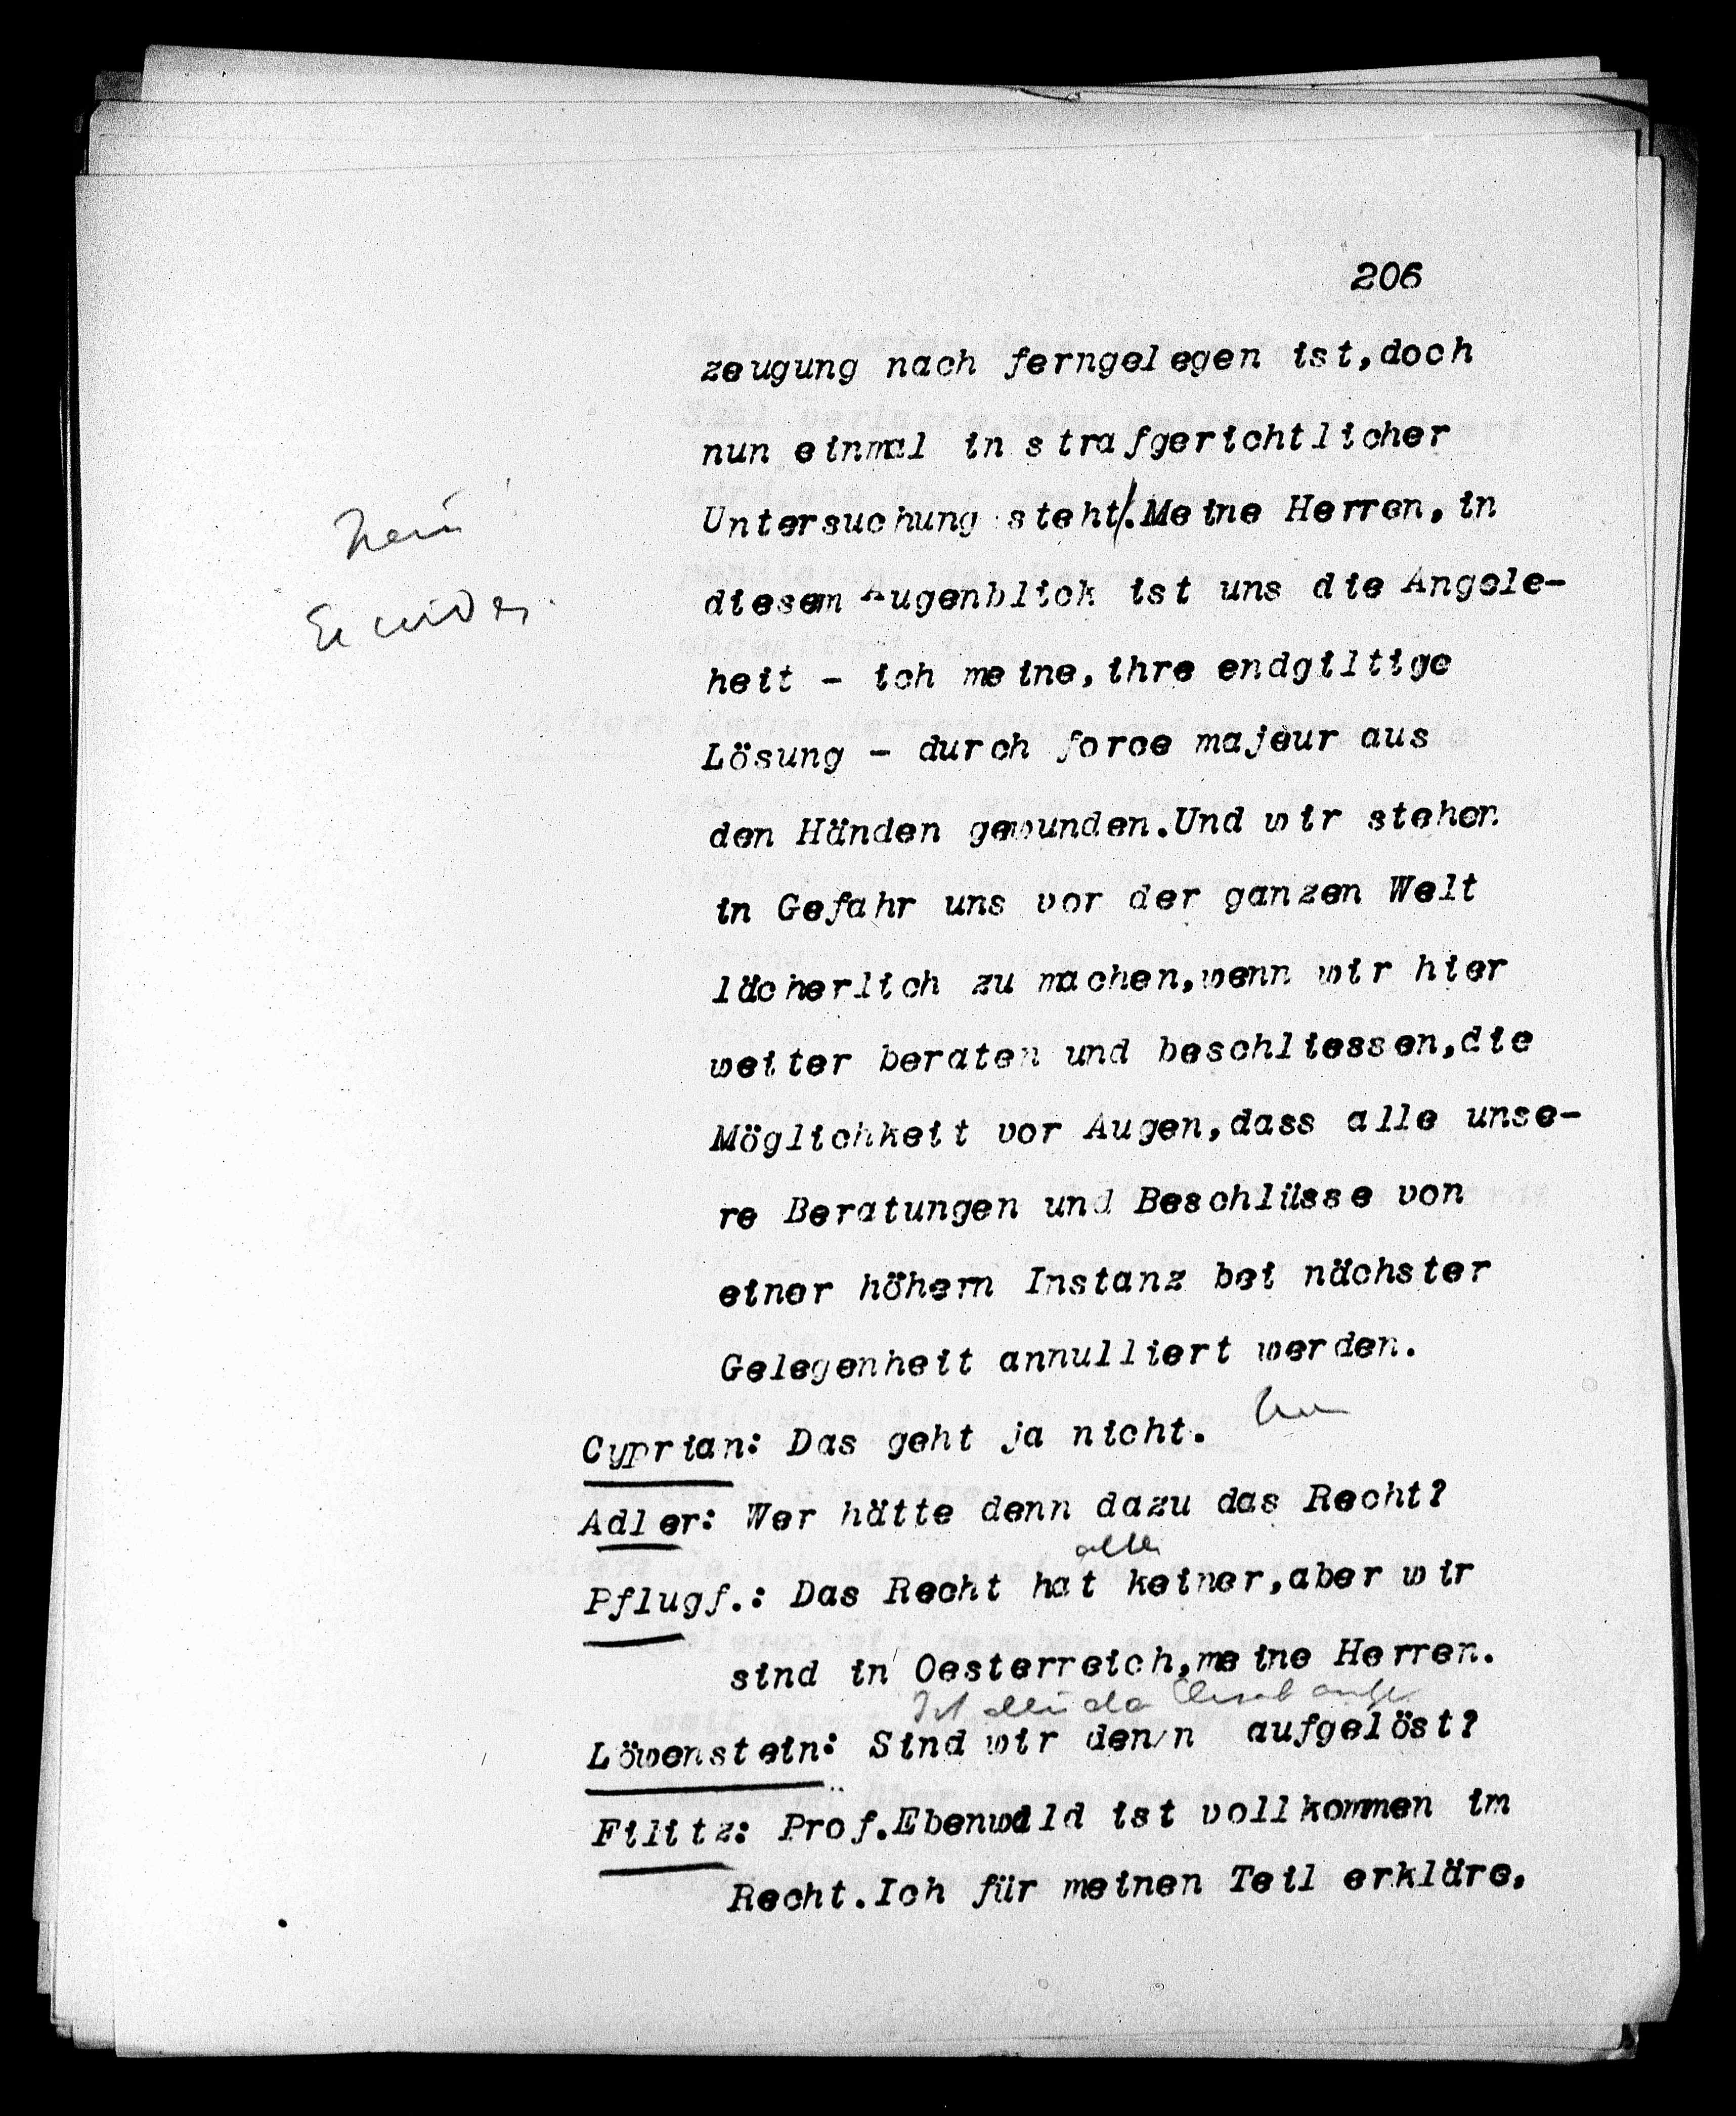 206
zeugung nach ferngelegen ist,doch
nun einmal in strafgerichtlicher
Untersuchung steht/.Meine Herren, in
diesem Augenblick ist uns die Angele-
heit - ich meine,ihre endgiltige
Lösung - durch force majeur aus
den Händen gewunden.Und wir stehen
in Gefahr uns vor der ganzen Welt
lächerlich zu machen,wenn wir hier
weiter beraten und beschliessen,die
Möglichkeit vor Augen,dass alle unse-
re Beratungen und Beschlüsse von
einer höhern Instanz bei nächster
Gelegenheit annulliert werden.
Cyprian: Das geht ja nicht.
Adler: Wer hätte denn dazu das Recht?
Pflugf.: Das Recht hat keiner,aber wir
sind in Oesterreich,meine Herren.
Löwenstein: Sind wir denn aufgelöst?
Filitz: Prof.Ebenwald ist vollkommen im
Recht.Ich für meinen Teil erkläre,